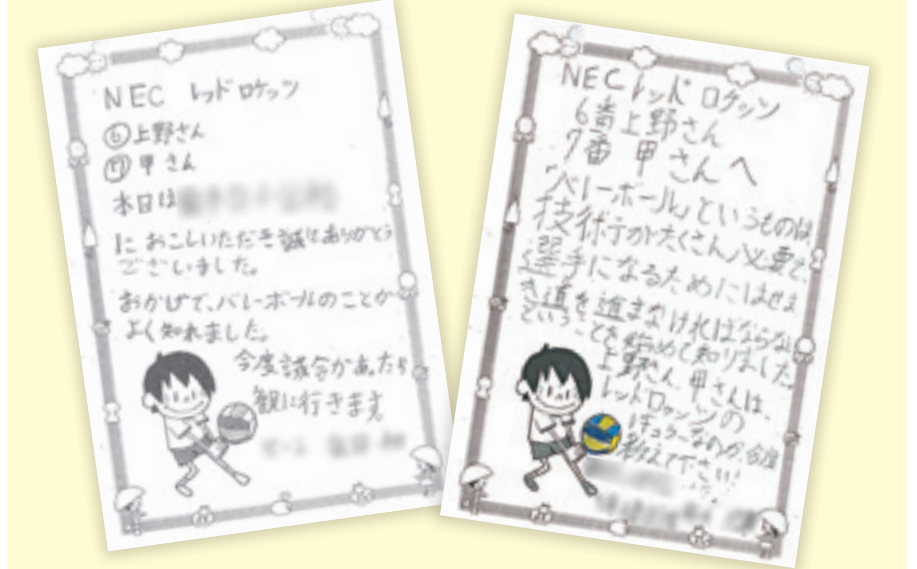 NEC レッドロケッツ
⑥上野さん
⑦甲さん
本日は
におこしいただき誠にありがとう
ございました。
おかげで、バレーボールのことが
よく知れました。
今度試合があったら
観に行きます
NECレッドロケッツ
6番上野さん
7番 甲さんへ
「バレーボール」というものは
技術がたくさん必要で、
選手になるためにはせま
き道を進まなければならない
ということを始めて知りました
上野さん、甲さんは、
レッドロケッツの
レギュラーなのか、今度
教えて下さい!